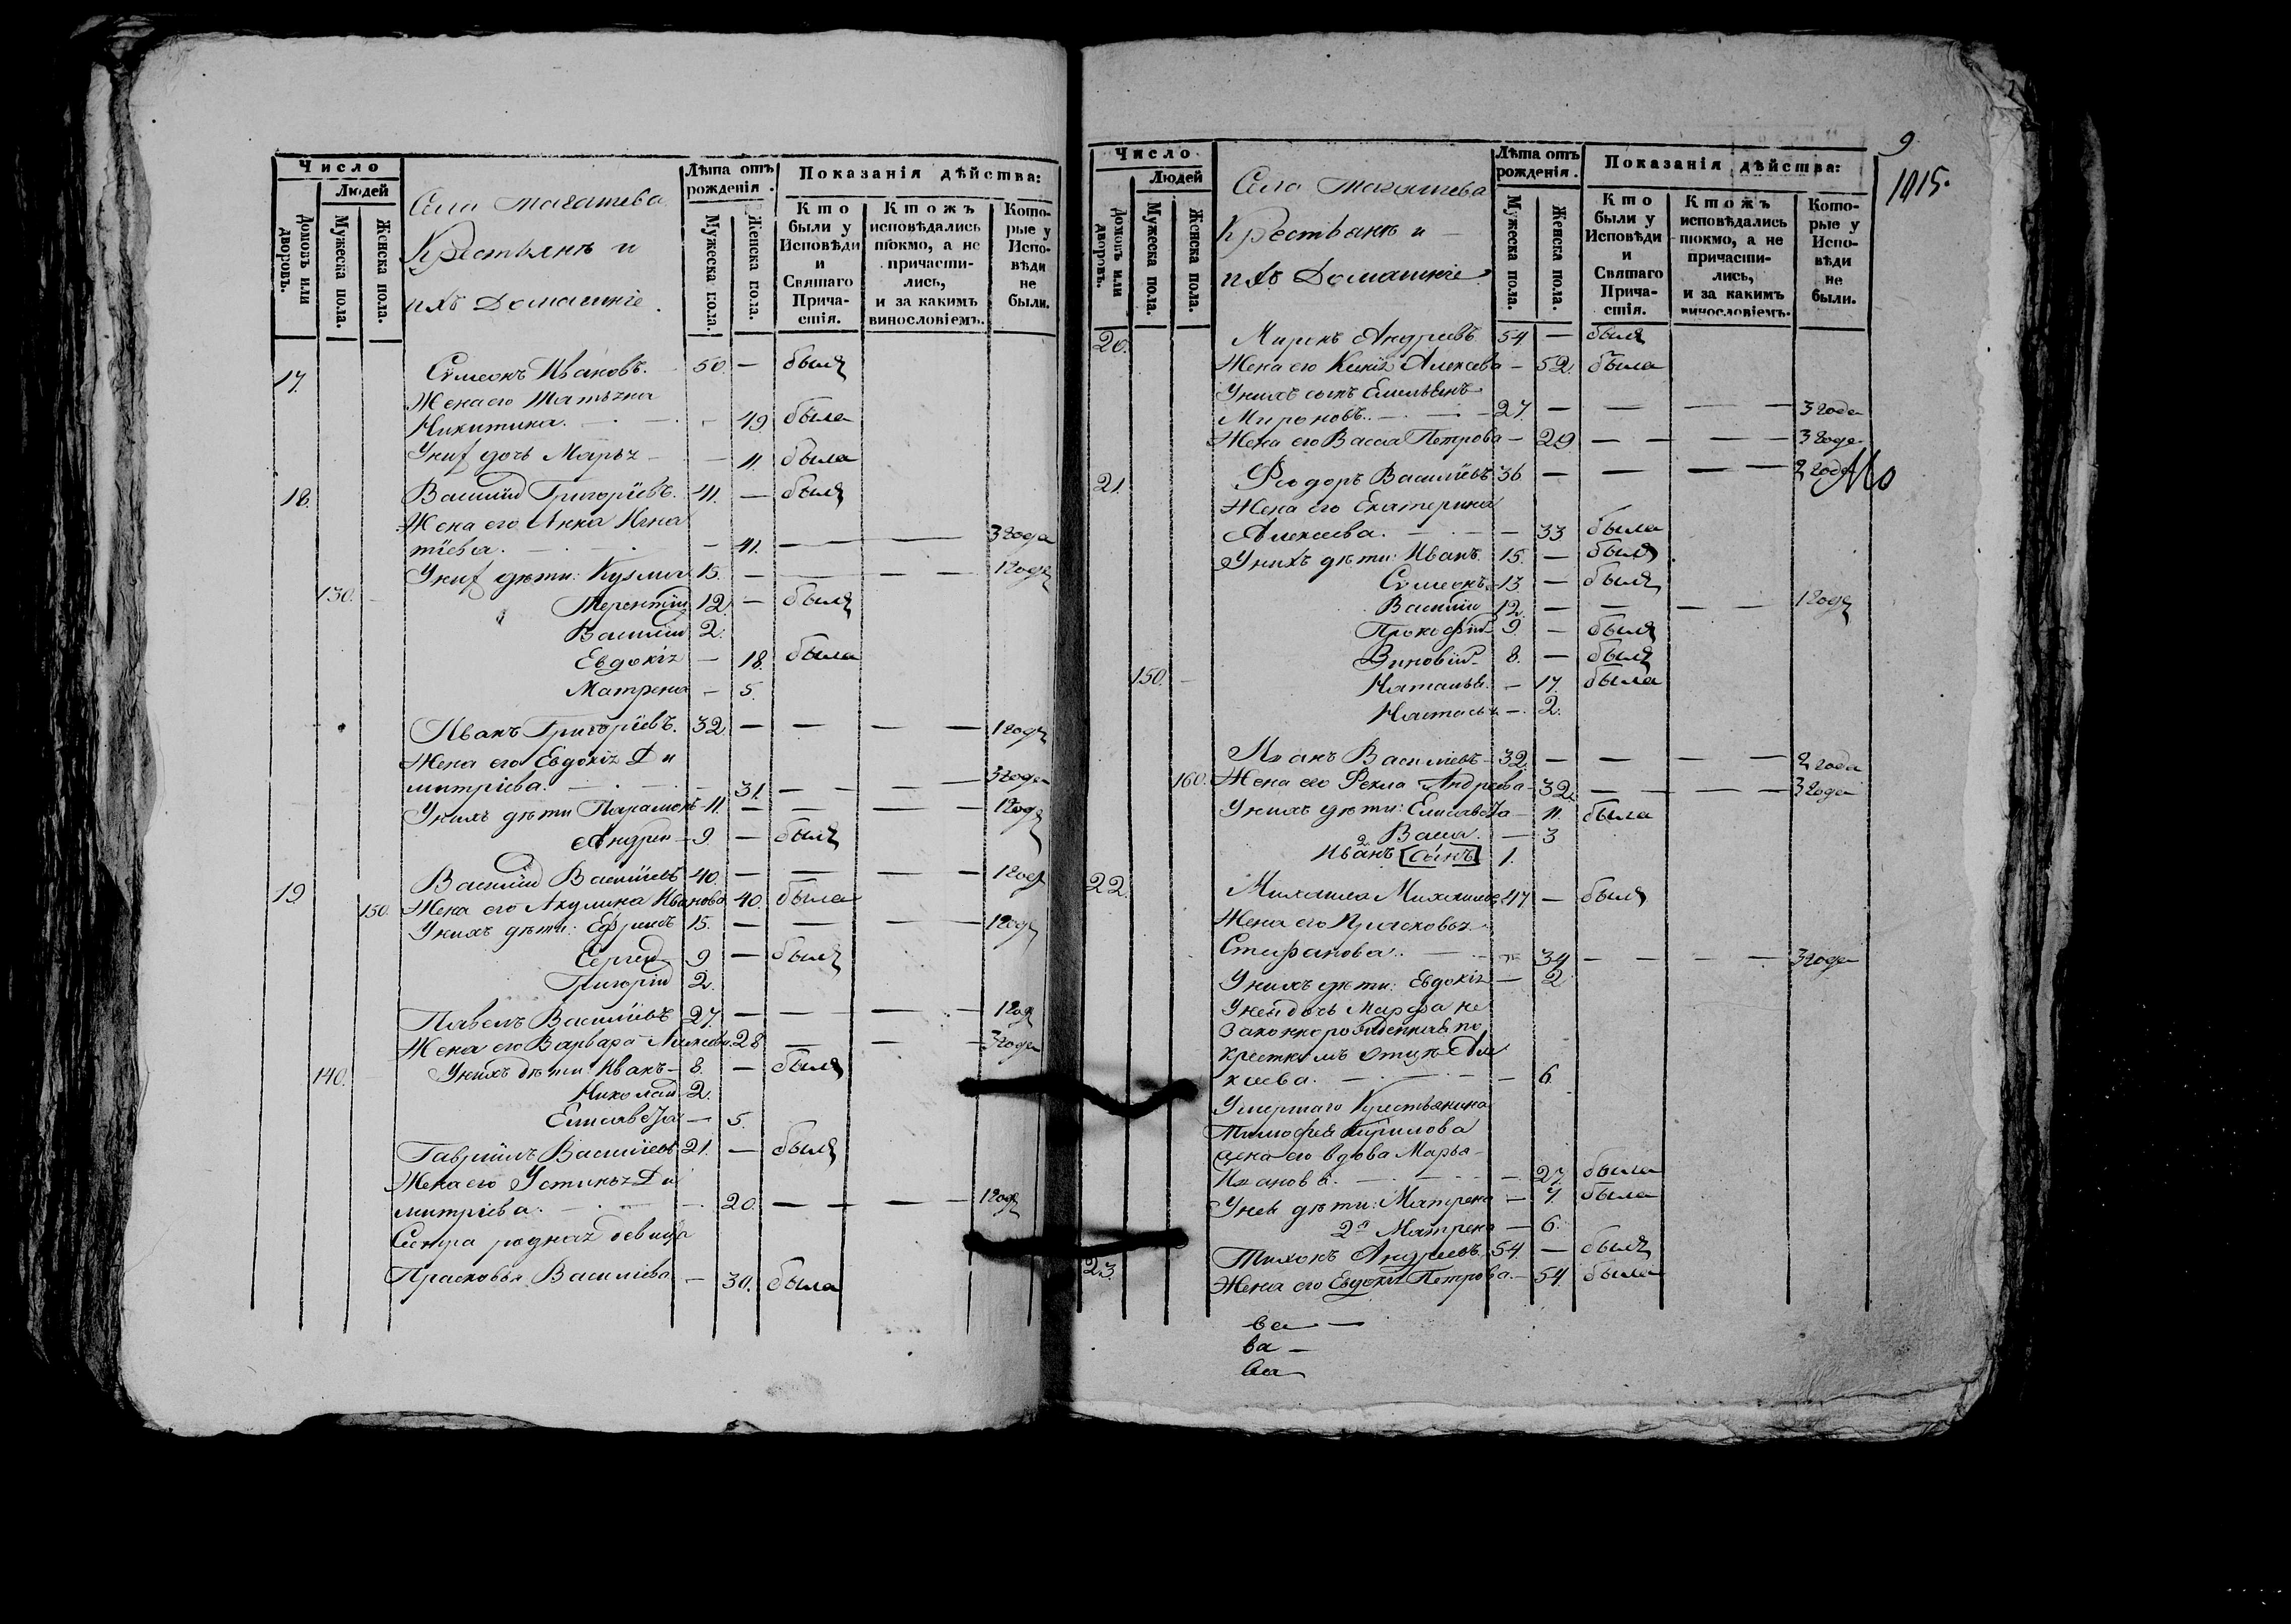 Число
Людей
Домовъ или дворовъ.
Мужеска пола.
Женска пола.
Села
Крестьянъ и
ихъ Домашніе.
Лѣта отъ рожденія.
Мужеска пола.
Женска пола.
Показанія дѣйства:
Кто были у Исповѣди и Святаго Причастія.
Ктожъ исповѣдались токмо, а не причастились, и за какимъ винословіемъ.
Которые у Исповѣди не были.
17. Сѵмеонъ Ивановъ. 50. — былъ
Жена его Татьяна
Никитина. — 49 была
У них дочь Марья — 11. была
18. Василій Григоріевъ. 41. — былъ
Жена его Анна Игна
тіева. — 41. — — 3 года
У них дѣти: Кузма 15. — — — 1 годъ
130. Терентій 12. — былъ
Василій 2.
Евдокія — 18. была
Матрена — 5.
Иванъ Григоріевъ. 32 — — — — 1 годъ
Жена его Евдокія Ди
митріева. — 31. — — — 3 года
У нихъ дѣти Парамонъ 11. — — — — 1 годъ
Андрей — 9 — былъ
19 Василій Васильевъ 40. — — — — 1 годъ
150. Жена его Акулина Иванова 40. была
У нихъ дѣти: Ефримъ 15. — — — — 1 годъ
Сергей 9 — былъ
Григорій 2.
Павелъ Васильевъ 27. — — — — 1 год
Жена его Варвара 28 — — — 3 года
140. У нихъ дѣти: Иванъ — 8. — былъ
Николай 2.
Елисавета — 5.
Гавріилъ Васильевъ 21. — былъ
Жена его Устинья Ди
митріева. — 20. — — — — 1 годъ
Сестра родная девица
Прасковья Василіева — 30. была
9
1015.
Число
Людей
Домовъ или дворовъ.
Мужеска пола.
Женска пола.
Села
Крестьянъ и —
ихъ Домашніе
Лѣта отъ рожденія.
Мужеска пола.
Женска пола.
Показанія дѣйства:
Кто были у Исповѣди и Святаго Причастія.
Ктожъ исповѣдались токмо, а не причастились, и за какимъ винословіемъ.
Которые у Исповѣди не были.
20. Миронъ Андреевъ 54. — былъ
Жена его Алексеева — 52. была
У нихъ сынъ Емельянъ
Мироновъ. — 27. — — — — 3 года
Жена его Васса Петрова — 29 — — — — 3 года
21. Феодоръ Василіевъ 36 — — — — 2 года
Жена его Екатерина
Алексеева. — 33 была
У нихъ дѣти: Иванъ 15. — былъ
Сѵмеонъ 13 — былъ
Василій 12. — — — — 1 годъ
Прокофій 9. — былъ
Зиновій 8. — былъ
150. — Наталья — 17. была
Настасья — 2.
Иванъ Василіевъ — 32 — — — — 2 года
160. Жена его Фекла Андреева — 32. — — — — 3 года
У нихъ дѣти: Елисавета — 11. была
Васса. — 3
Иванъ сынъ 1.
22. Михаила Михайловъ 47. — былъ
Жена его Прасковья
Стефанова. — 34 — — — — 3 года
У нихъ дѣти: Евдокія — 2
У ней дочь Марфа не
законнорожденная по
крестномъ отцѣ
— 6.
Умершаго Крестьянина
Тимофея Кирилова
жена его вдова Марья
Иванова. — 27. была
У ней дѣти: Матрена — 7. была
2я Матрена — 6.
23. Тихонъ Андреевъ. 54. — былъ
Жена его Евдокія Петрова. — 54. была
ва —
ва —
ва